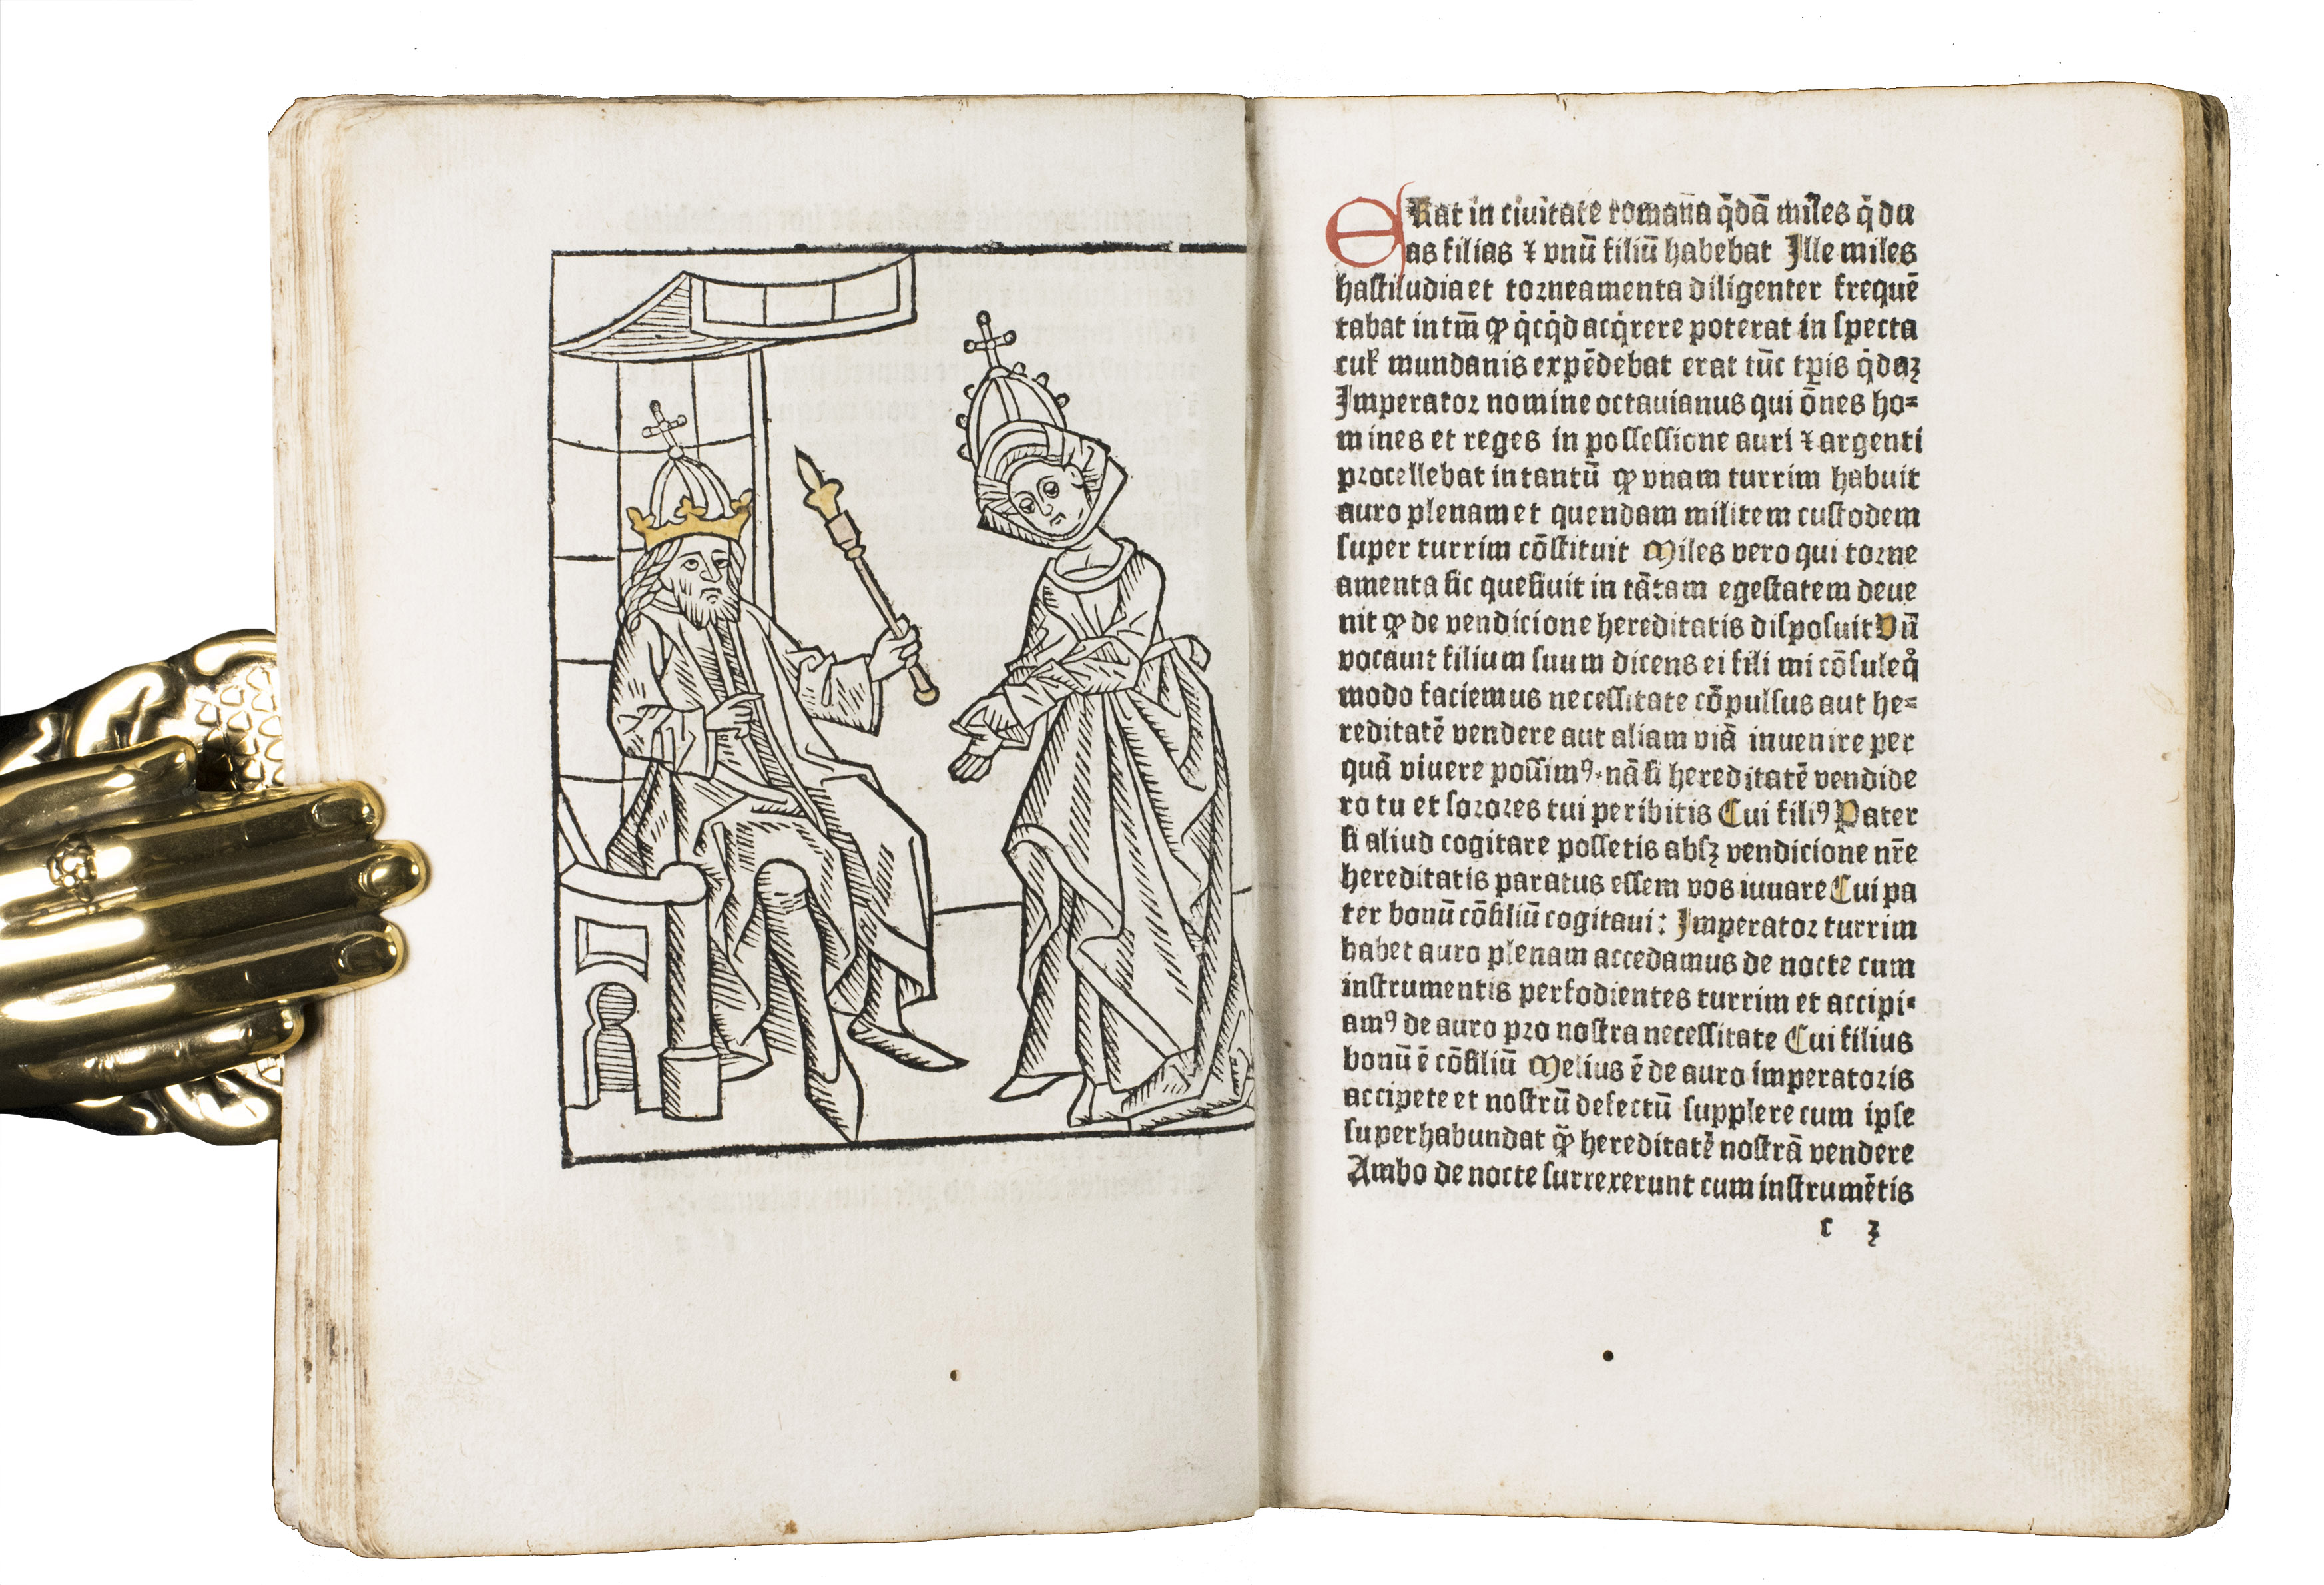 ERat in ciuitate romana q̄dā miles q̄ du
as filias ⁊ vnū filiū habebat Jlle miles
hastiludia et torneamenta diligenter frequē
tabat in tm̄ ꝙ q̇cq̇d acq̇rere poterat in specta
cuł mundanis expēdebat erat tūc tꝑis q̇daꝫ
Jmperator nomine octauianus qui ōnes ho⸗
mines et reges in possessione auri ⁊ argenti
procellebat in tantū ꝙ vnam turrim habuit
auro plenam et quendam militem custodem
super turrim cōstituit Miles vero qui torne
amenta sic quesiuit in tātam egestatem deue
nit ꝙ de vendicione hereditatis disposuit Vn̄
vocauit filium suum dicens ei fili mi cōsule qͦ
modo faciemus necessitate cōpulsus aut he⸗
reditatē vendere aut aliam viā inuenire per
quā viuere possimꝰ·nā si hereditatē vendide
ro tu et sorores tui peribitis Cui filiꝰ Pater
si aliud cogitare possetis absꝫ vendicione nr̄e
hereditatis paratus essem vos iuuare Cui pa
ter bonū cōsiliū cogitaui: Jmperator turrim
habet auro plenam accedamus de nocte cum
instrumentis perfodientes turrim et accipi⸗
amꝰ de auro pro nostra necessitate Cui filius
bonū ē cōsiliū Melius ē de auro imperatoris
accipete et nostrū defectū supplere cum ipse
superhabundat ꝙ̄ hereditatē nostrā vendere
Ambo de nocte surrexerunt cum instrumētis
c ꝫ